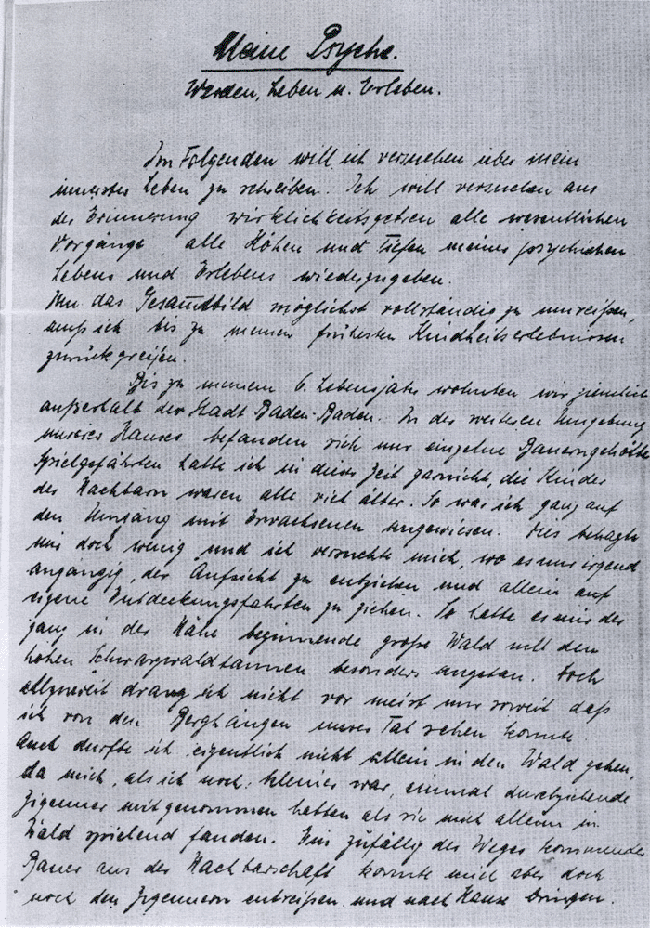 Meine Psyche.
Werden, Leben u. Erleben.
Im Folgenden will ich versuchen über mein
innerstes Leben zu schreiben. Ich will versuchen aus
der Erinnerung wirklichkeitsgetreu alle wesentlichen
Vorgänge alle Höhen und Tiefen meines psychischen
Lebens und Erlebens wiederzugeben.
Um das Gesamtbild möglichst vollständig zu umreißen,
muß ich bis zu meinen frühesten Kindheitserlebnissen
zurückgreifen.
Bis zu meinem 6. Lebensjahr wohnten wir ziemlich
außerhalb der Stadt Baden-Baden. In der weiteren Umgebung
unseres Hauses befanden sich nur einzelne Bauerngehöfte
Spielgefährten hatte ich in dieser Zeit garnicht, die Kinder
der Nachbarn waren alle viel älter. So war ich ganz auf
den Umgang mit Erwachsenen angewiesen. Dies behagte
mir doch wenig und ich versuchte mich, wo es nur irgend
angängig, der Aufsicht zu entziehen und allein auf
eigene Entdeckungsfahrten zu ziehen. So hatte es mir der
ganz in der Nähe beginnende große Wald mit den
hohen Schwarzwaldtannen besonders angetan. Doch
allzuweit drang ich nicht vor meist nur soweit daß
ich von den Berghängen unser Tal sehen konnte.
Auch durfte ich eigentlich nicht allein in den Wald gehen,
da mich, als ich noch kleiner war, einmal durchziehende
Zigeuner mitgenommen hatten als sie mich allein im
Wald spielend fanden. Ein zufällig des Weges kommender
Bauer aus der Nachbarschaft konnte mich aber doch
noch den Zigeunern entreißen und nach Hause bringen.